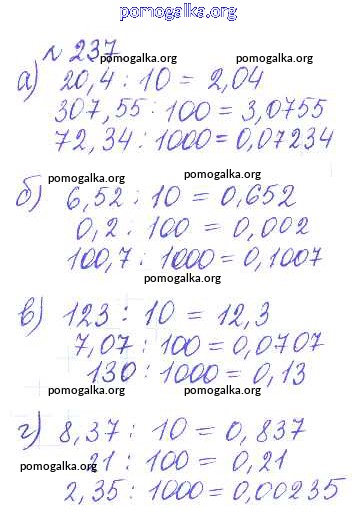 pomogalka.org
№ 237
pomogalka.org pomogalka.org
а) 20,4 : 10 = 2,04
307,55 : 100 = 3,0755
72,34 : 1000 = 0,07234
pomogalka.org pomogalka.org
б) 6,52 : 10 = 0,652
0,2 : 100 = 0,002
100,7 : 1000 = 0,1007
pomogalka.org
в) 123 : 10 = 12,3
7,07 : 100 = 0,0707
130 : 1000 = 0,13
pomogalka.org pomogalka.org
г) 8,37 : 10 = 0,837
21 : 100 = 0,21
pomogalka.org
2,35 : 1000 = 0,00235
pomogalka.org